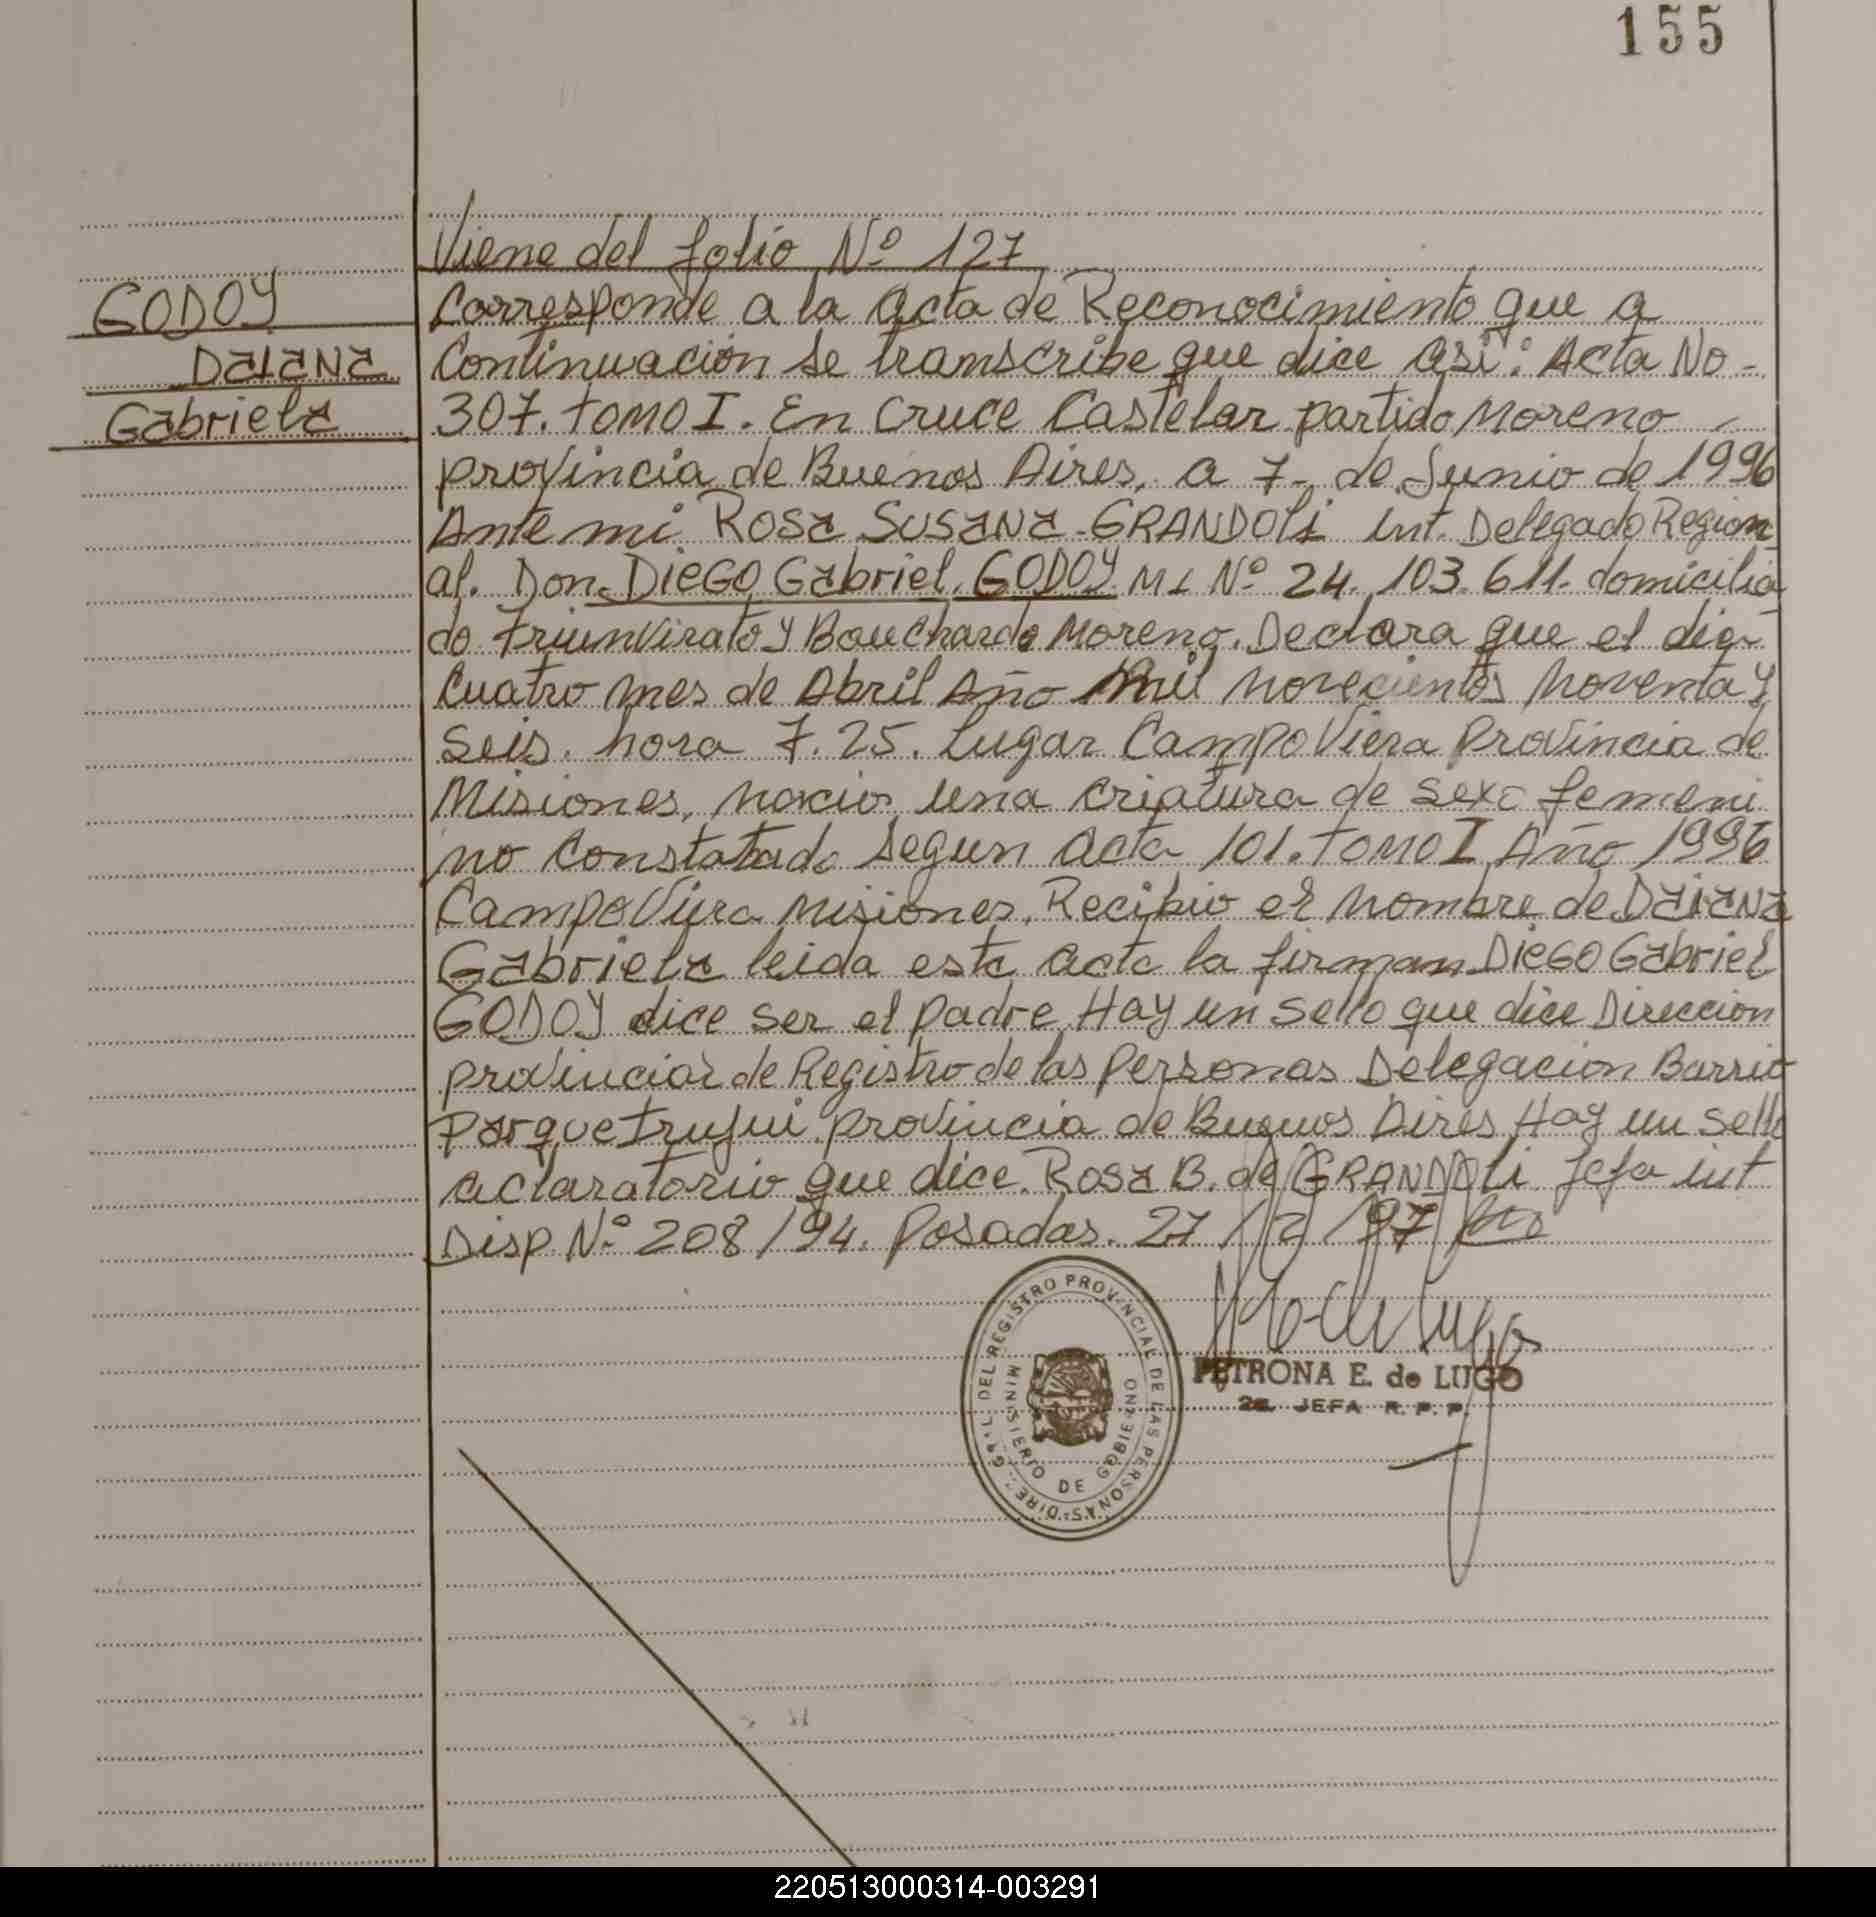 155
Viene del folio Nº 127
GODOY
Daiana
Gabriela
Corresponde a la acta de Reconocimiento que a
Continuación se transcribe que dice asi: Acta No -
307. tomo I. En Cruce Castelar partido Moreno
provincia de Buenos Aires, a 7 de Junio de 1996
Ante mi Rosa Susana GRANDOLi Int. Delegado Region
al. Don Diego Gabriel GODOY MI Nº 24.103.611. domicilia
do triunvirato y Bouchardo Moreno. Declara que el dia
Cuatro mes de Abril Año mil novecientos noventa y
seis. hora 7.25. Lugar Campo Viera provincia de
Misiones, nacio una criatura de sexo femeni
no constatado segun acta 101. tomo I Año 1996
Campo Viera Misiones. Recibio el nombre de Daiana
Gabriela leida esta acta la firman Diego Gabriel
GODOY dice ser el padre Hay un sello que dice Direccion
provincial de Registro de las personas Delegacion Barrio
Parque trujui provincia de Buenos Aires Hay un sello
aclaratorio que dice. Rosa B. de GRANDOLi Jefa int
Disp. Nº 208/94. Posadas. 27/2/97
DIREC. GRAL. DEL REGISTRO PROVINCIAL DE LAS PERSONAS
MINISTERIO DE GOBIERNO
PETRONA E. de LUGO
2a. JEFA R. P. P.
220513000314-003291